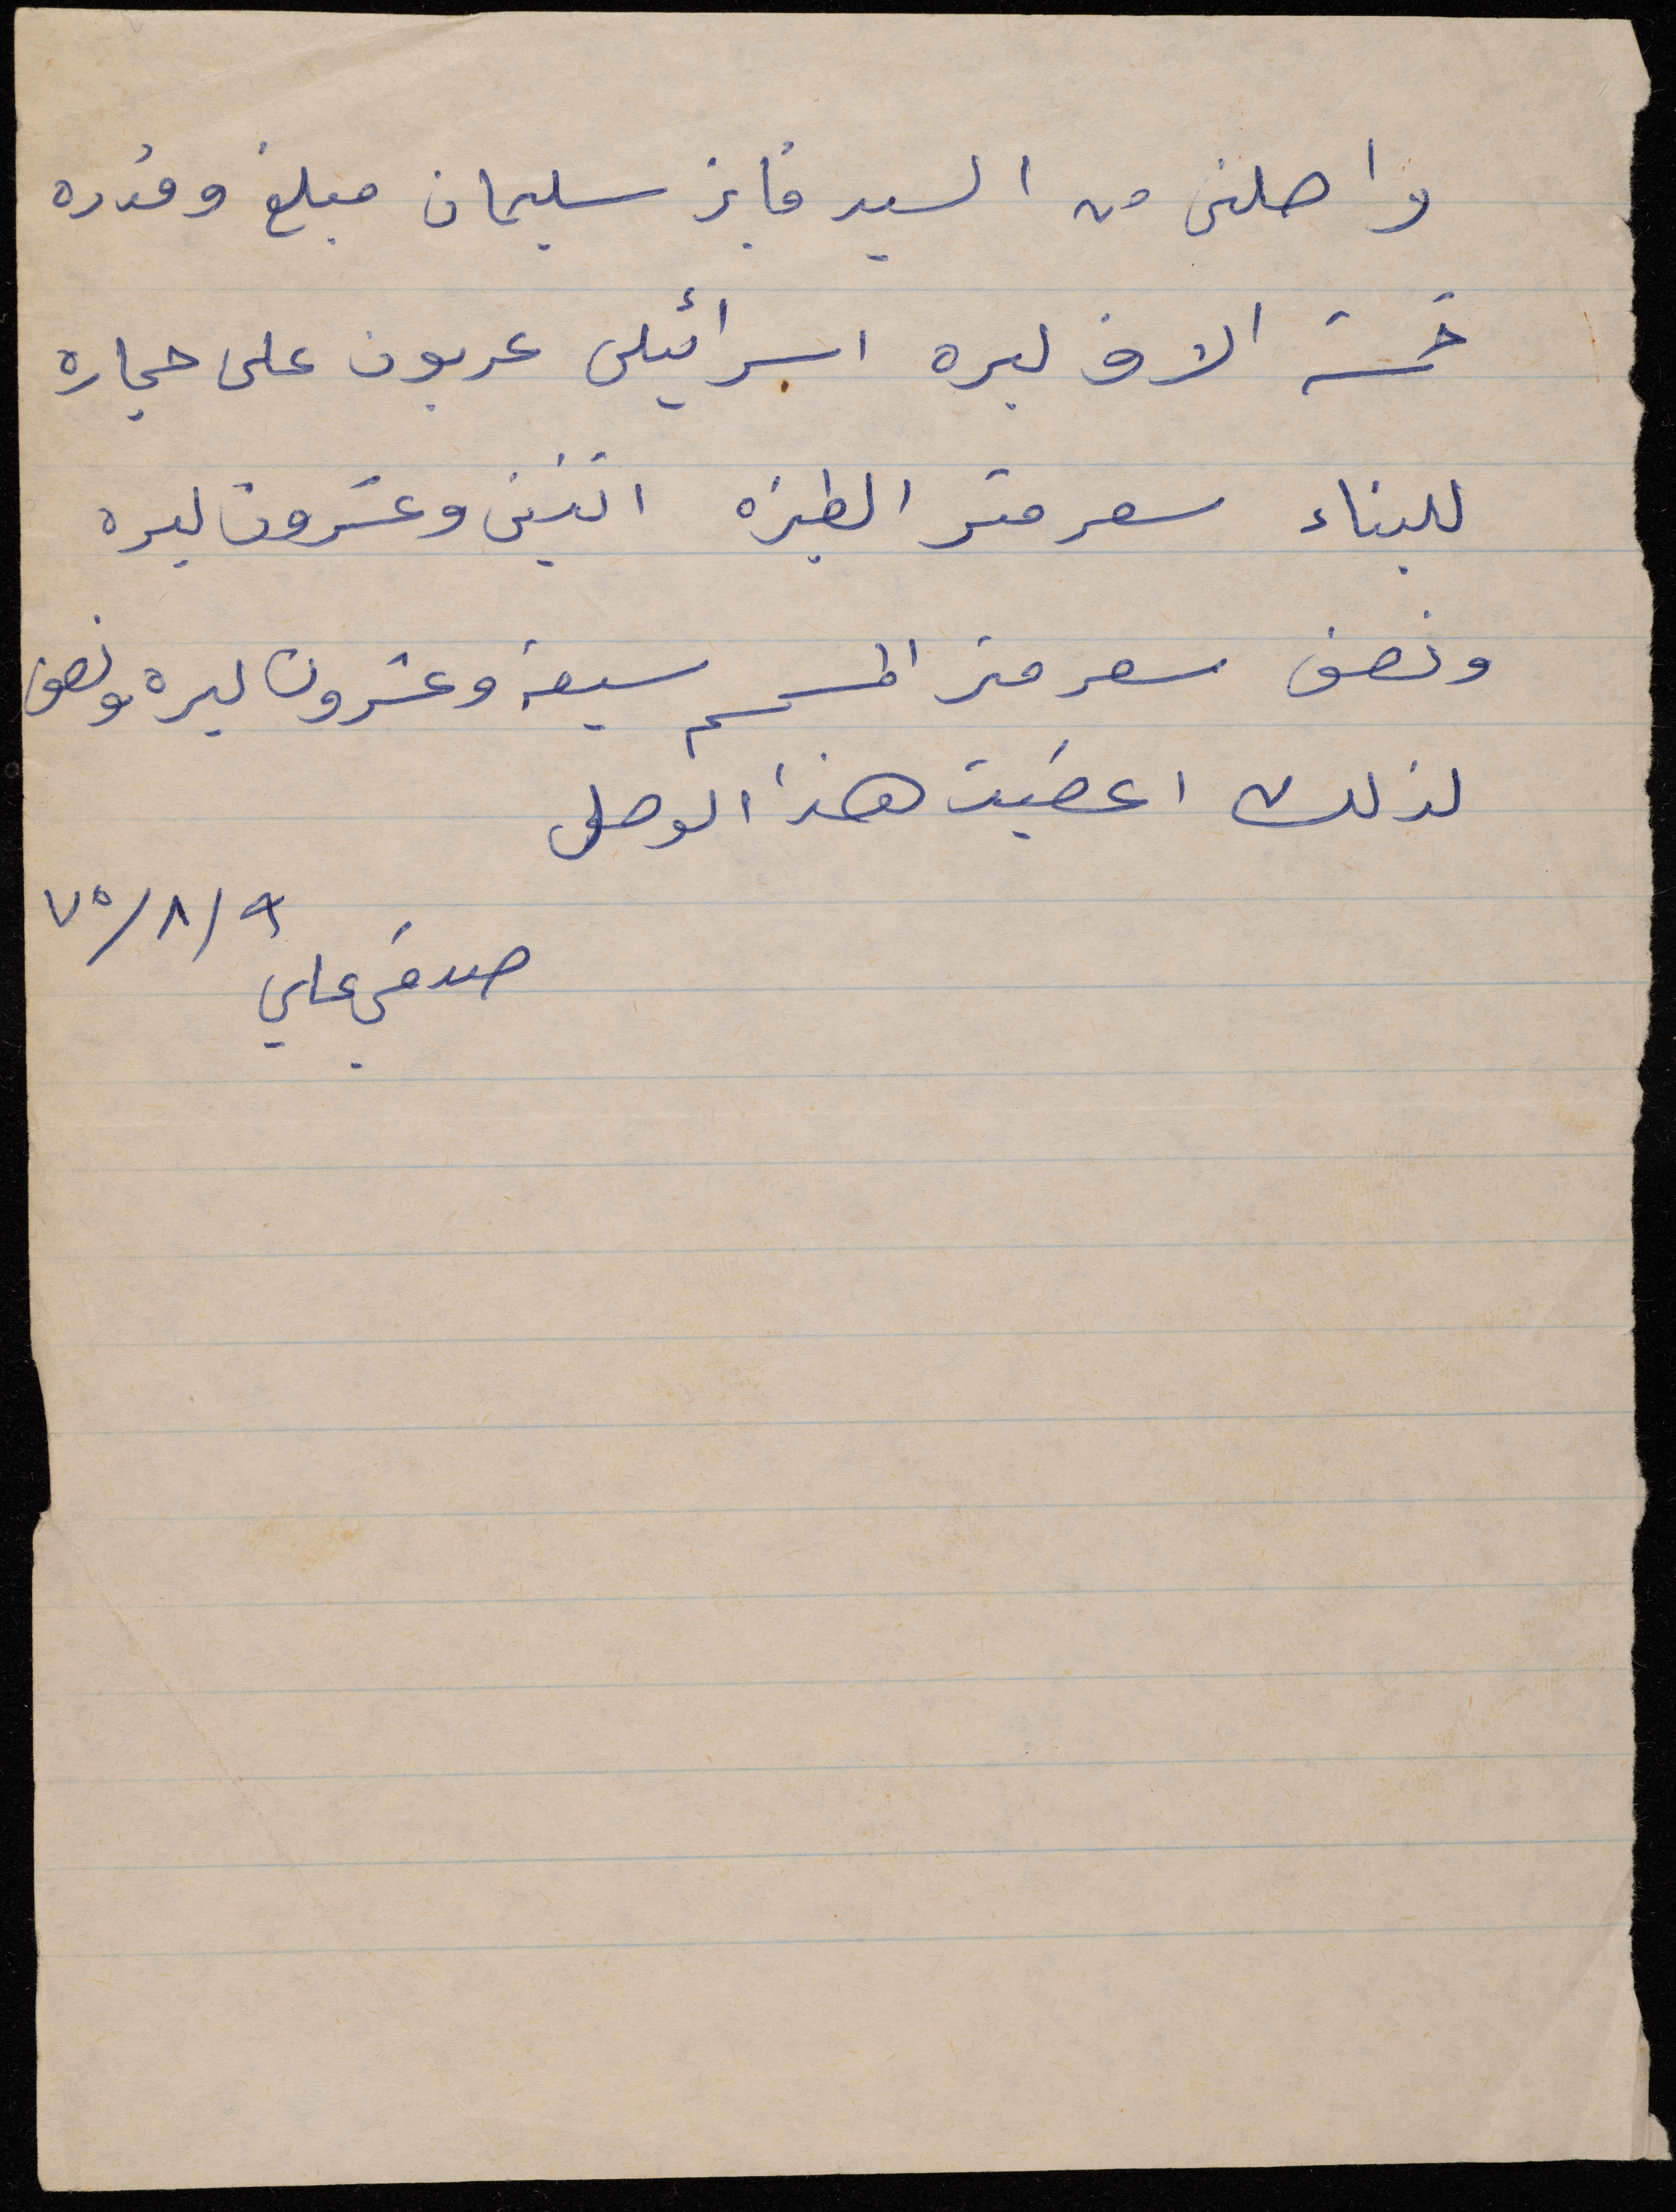 واصلني من السيد فايز سليمان مبلغ وقدره
خمسة الاف ليره اسرائيلي عربون على حجاره
للبناء سعر متر الطبزه اثنين وعشرون ليره
ونصف سعر متر المسمسم سبعة وعشرون ليره ونصف
لذلك اعطيت هذا الوصل
٧٥/٨/٩
صدقي علي